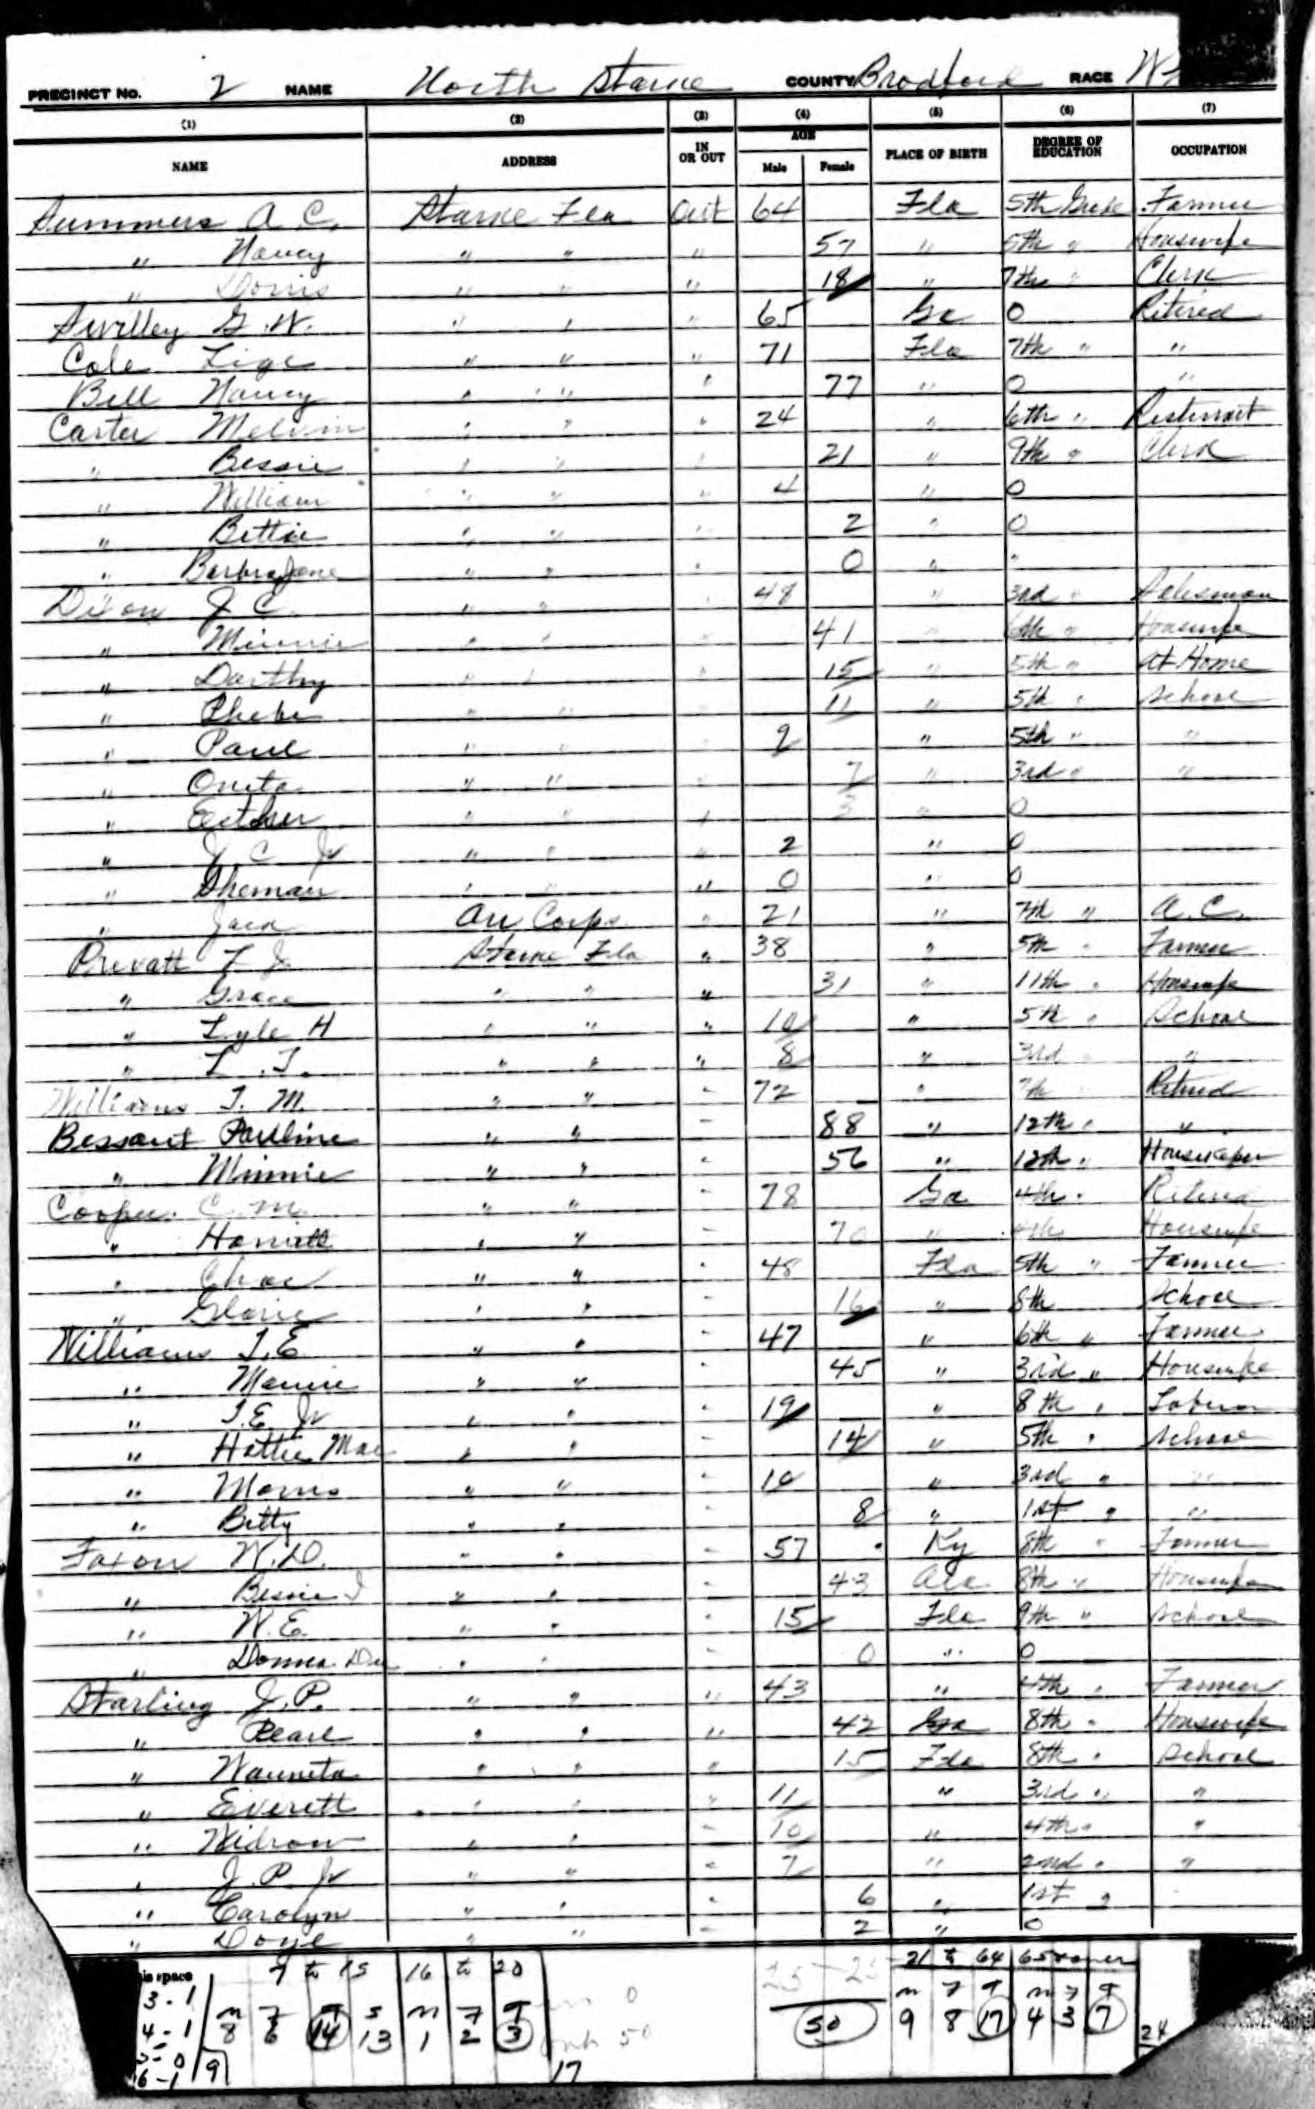 PRECINCT NO. 2 NAME North Starke COUNTY Bradford RACE
(1) (2) (3) (4) (5) (6) (7)
NAME ADDRESS IN OR OUT AGE Male Female PLACE OF BIRTH DEGREE OF EDUCATION OCCUPATION
Summers A C. Starke Fla Out 64 Fla 5th Grade Farmer
" Nancy " " " 57 " 5th " Housewife
" Dorris " " " 18 " 7th " Clerk
Swilley G. W. " " " 65 Ga 0 Retired
Cole Lige " " " 71 Fla 7th " "
Bell Nancy " " " 77 " 0 "
Carter Melvin " " " 24 " 6th " Resturart
" Bessie " " " 21 " 9th " Clerk
" William " " " 4 " 0
" Bettie " " " 2 " 0
" Barbra Jane " " " 0 " "
Dixon J C. " " " 48 " 3rd " Salesman
" Minnie " " " 41 " 6th " Housewife
" Darthy " " " 15 " 5th " At Home
" Phebe " " " 11 " 5th " School
" Paul " " " 9 " 5th " "
" Oneta " " " 7 " 3rd " "
" Esther " " " 3 " 0
" J C Jr " " " 2 " 0
" Sherman " " " 0 " 0
" Jack Air Corps " 21 " 7th " A. C.
Prevatt L J. Starke Fla " 38 " 5th " Farmer
" Grace " " " 31 " 11th " Housewife
" Lyle H " " " 10 " 5th " School
" L. J. " " " 8 " 3rd "
Williams J. M. " " " 72 " 7th Retired
Bessant Pauline " " " 88 " 12th " "
" Minnie " " " 56 " 12th " Housekeeper
Cooper C. M. " " " 78 Ga 4th " Retired
" Harriett " " " 70 " 4th Housewife
" Chas " " " 48 Fla 5th " Farmer
" Glorie " " " 16 " 8th School
Williams J. E. " " " 47 " 6th " Farmer
" Mamie " " " 45 " 3rd " Housewife
" J. E. Jr " " " 19 " 8th " Laborer
" Hattie Mae " " " 14 " 5th " School
" Morris " " " 10 " 3rd " "
" Betty " " " 8 " 1st " "
Faxon W. D. " " " 57 Ky 8th " Farmer
" Bessie J " " " 43 Ala 8th " Housewife
" W. E. " " " 15 Fla 9th " School
" Donna Dee " " " 0 " 0
Starling J. P. " " " 43 " 4th " Farmer
" Pearl " " " 42 Ga 8th " Housewife
" Waunita " " " 15 Fla 8th " School
" Everett " " " 11 " 3rd " "
" Widrow " " " 10 " 4th " "
" J. P. Jr " " " 7 " 2nd " "
" Carolyn " " " 6 " 1st "
" Doyle " " " 2 " 0
space 7 to 15 16 to 20 25 25 21 to 64 65 & over
3-1 M F T S M F T 0 M F T M F T
4-1 8 6 14 13 1 2 3 50 50 9 8 17 4 3 7 24
5-0 9
6-1 17